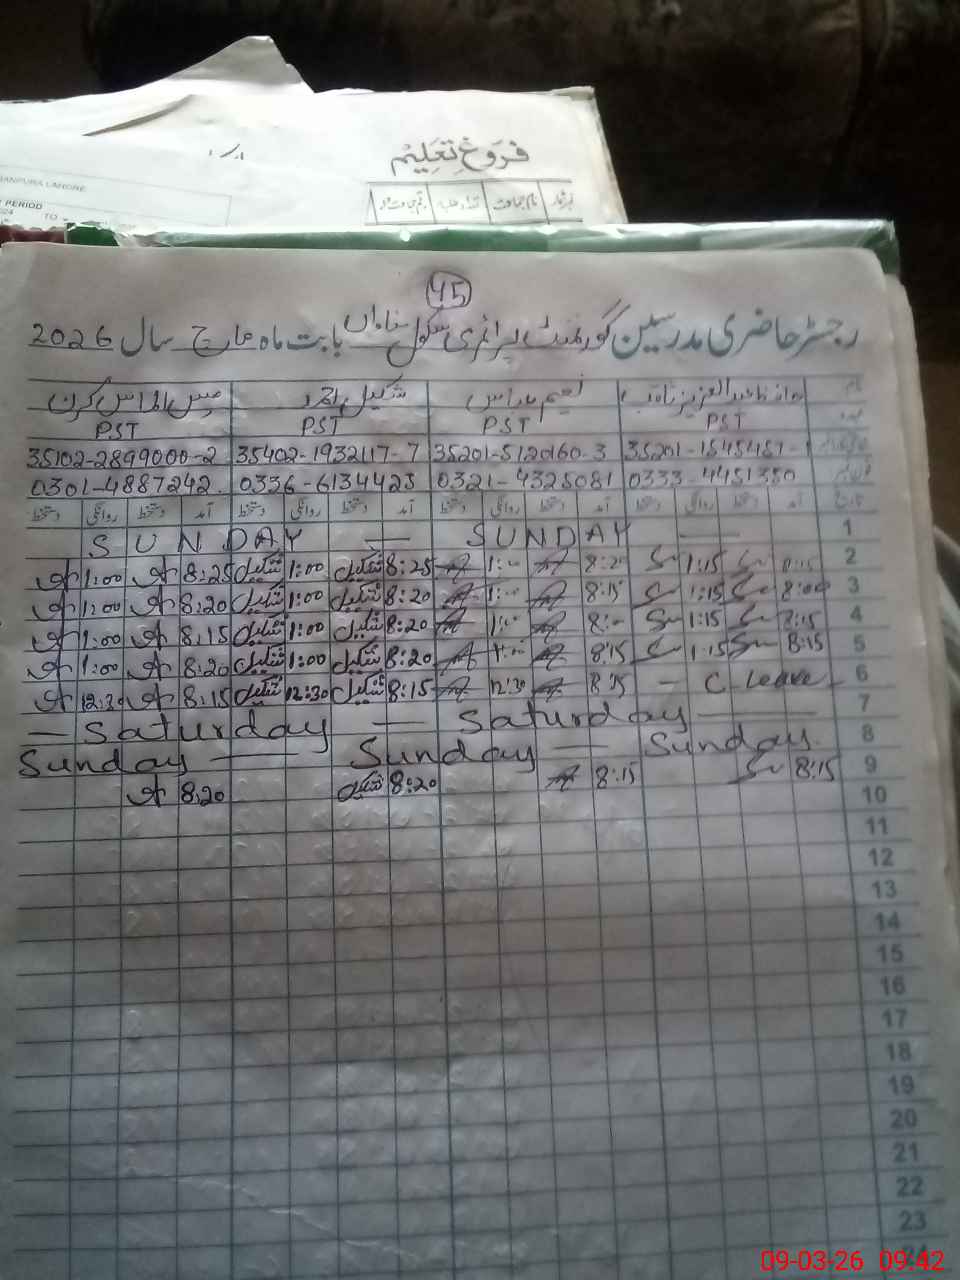 فروغِ تعلیم
ANPURA LAHORE
PERIOD
TO
نمبر شمار نام جماعت تعداد طلبہ
45
رجسٹر حاضری مدرسین گورنمنٹ پرائمری سکول بابت ماہ مارچ سال 2026
نام شکیل احمد مس الماس کرن
عہدہ PST PST PST PST
35201-5120160-3 35402-1932117-7 35102-2899000-2
0333-4451350 0321-4325081 0336-6134425 0301-4887242
تاریخ آمد دستخط روانگی دستخط آمد دستخط روانگی دستخط آمد دستخط روانگی دستخط آمد دستخط روانگی دستخط
1 SUNDAY — SUNDAY —
2 1:15 8:20 1:00 8:25 شکیل 1:00 شکیل 8:25 1:00
3 8:00 1:15 8:15 1:00 8:20 شکیل 1:00 شکیل 8:20 1:00
4 8:15 1:15 8:00 1:00 8:20 شکیل 1:00 شکیل 8:15 1:00
5 8:15 1:15 8:15 1:00 8:20 شکیل 1:00 شکیل 8:20 1:00
6 — C. Leave 8:15 12:30 8:15 شکیل 12:30 شکیل 8:15 12:30
7 — Saturday — Saturday —
8 Sunday — Sunday — Sunday
9 8:15 8:15 8:20 شکیل 8:20
10
11
12
13
14
15
16
17
18
19
20
21
22
23
24
09-03-26 09:42